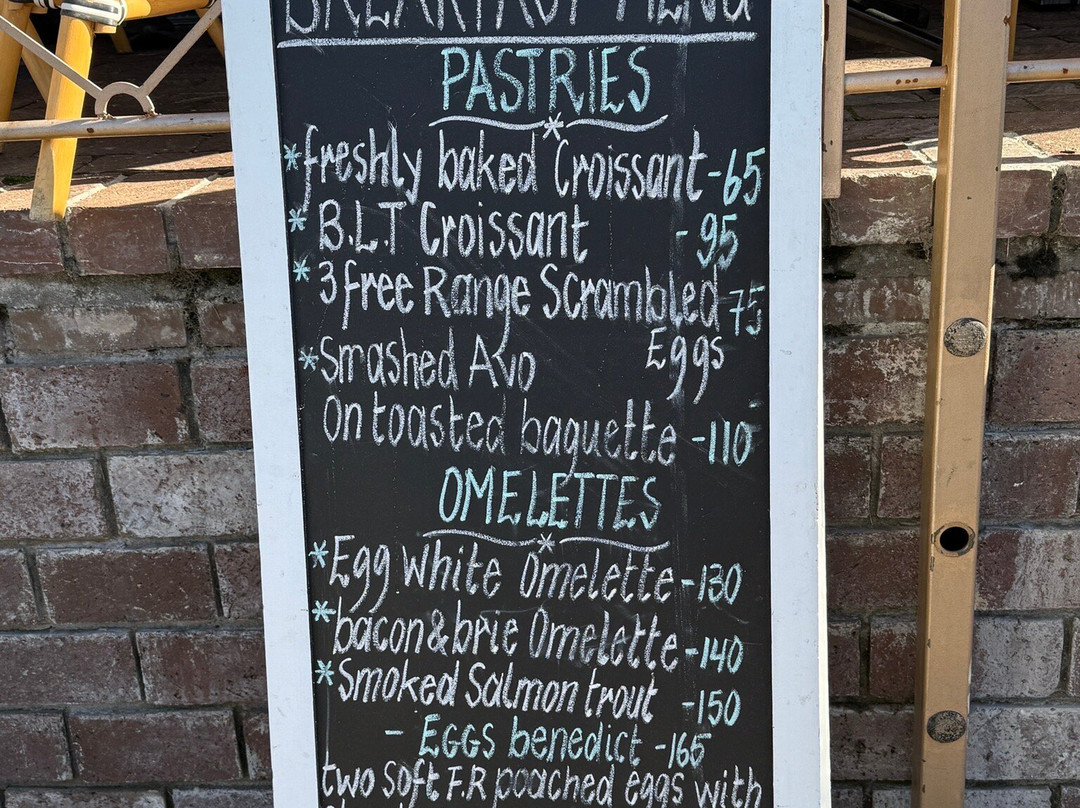 BREAKFAST MENU
PASTRIES
*freshly baked Croissant-65
* B.L.T Croissant -95
* 3 free Range Scrambled 75
Eggs
*Smashed Avo
On toasted baguette -110
OMELETTES
*Egg White Omelette-130
*bacon&brie Omelette-140
*Smoked Salmon trout -150
- EGGS benedict -165
two Soft F.R poached eggs with